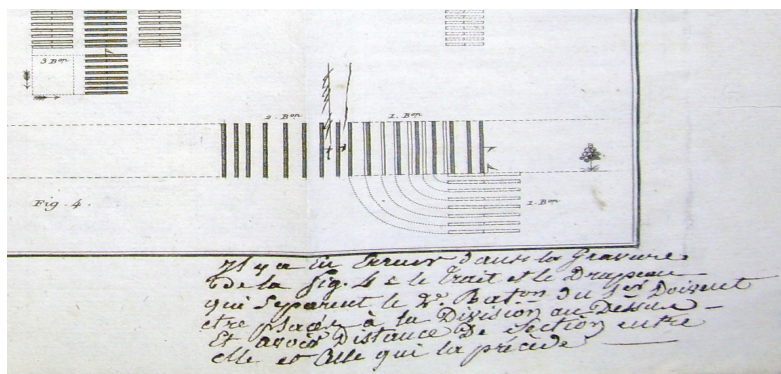 3 Bon
2. Bon
1. Bon
Fig. 4.
1. Bon
Il y a Eu Erreur dans la Gravure
de la fig. 4 e le trait et le Drapeau
qui Separent le 2e Baton du 1er Doivent
etre placés à la Division au Dessus
Et avoir Distance De Section entre
elle et Celle qui la précède